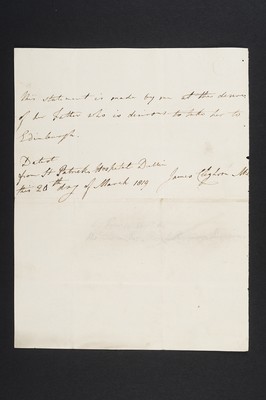 This statement is made by me at the desire
of her father who is desirous to take her to
Edinburgh.
Dated
from St Patricks Hospital Dublin
this 20th day of March 1819
James Cleghorn MD